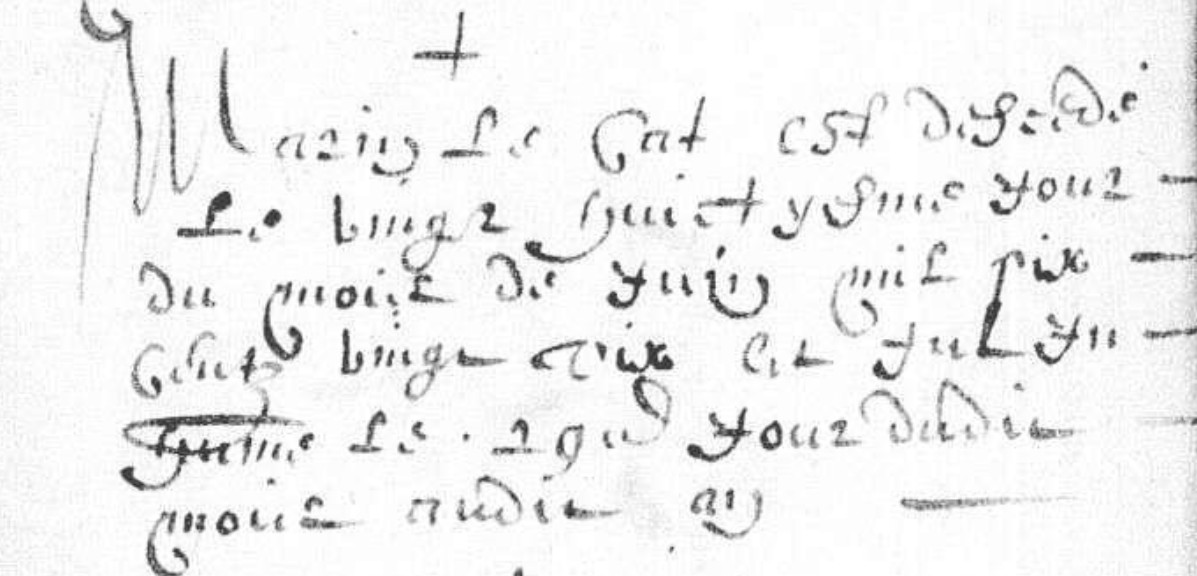 +
Marin Le Cat est desedé
Le vingt huictyesme jour
du mois de Juin mil six
centz vingt six et fut In
humé Le 29e jour dudit
mois audit an